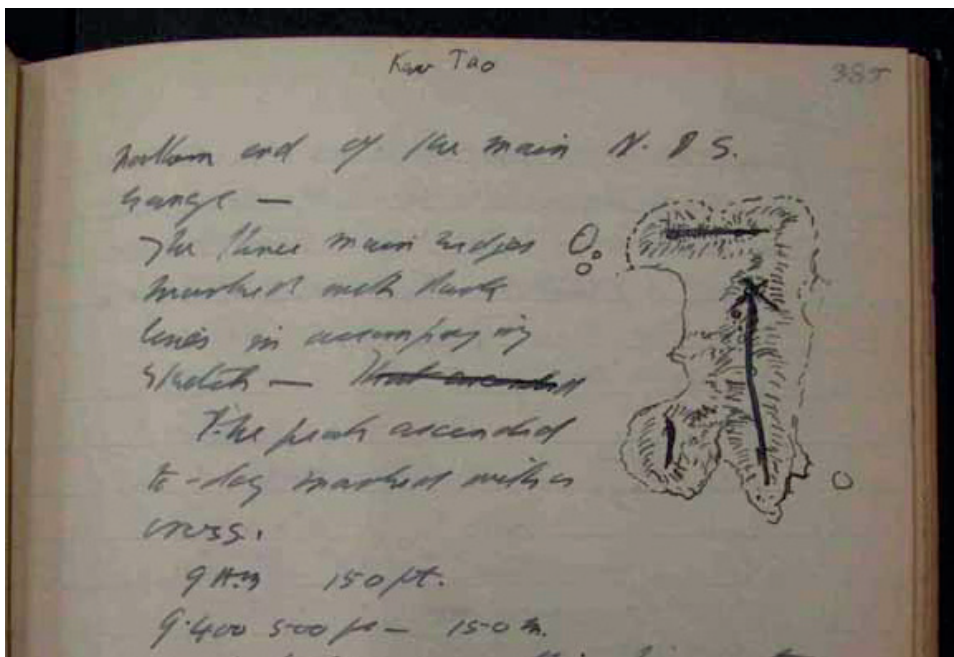 Kaw Tao
385
northern end of the main N. & S.
range —
The three main ridges
marked with dark
lines in accompanying
sketch — That ascended
The peak ascended
to-day marked with a
cross.
9 Am 150 ft.
500 ft — 150 m.